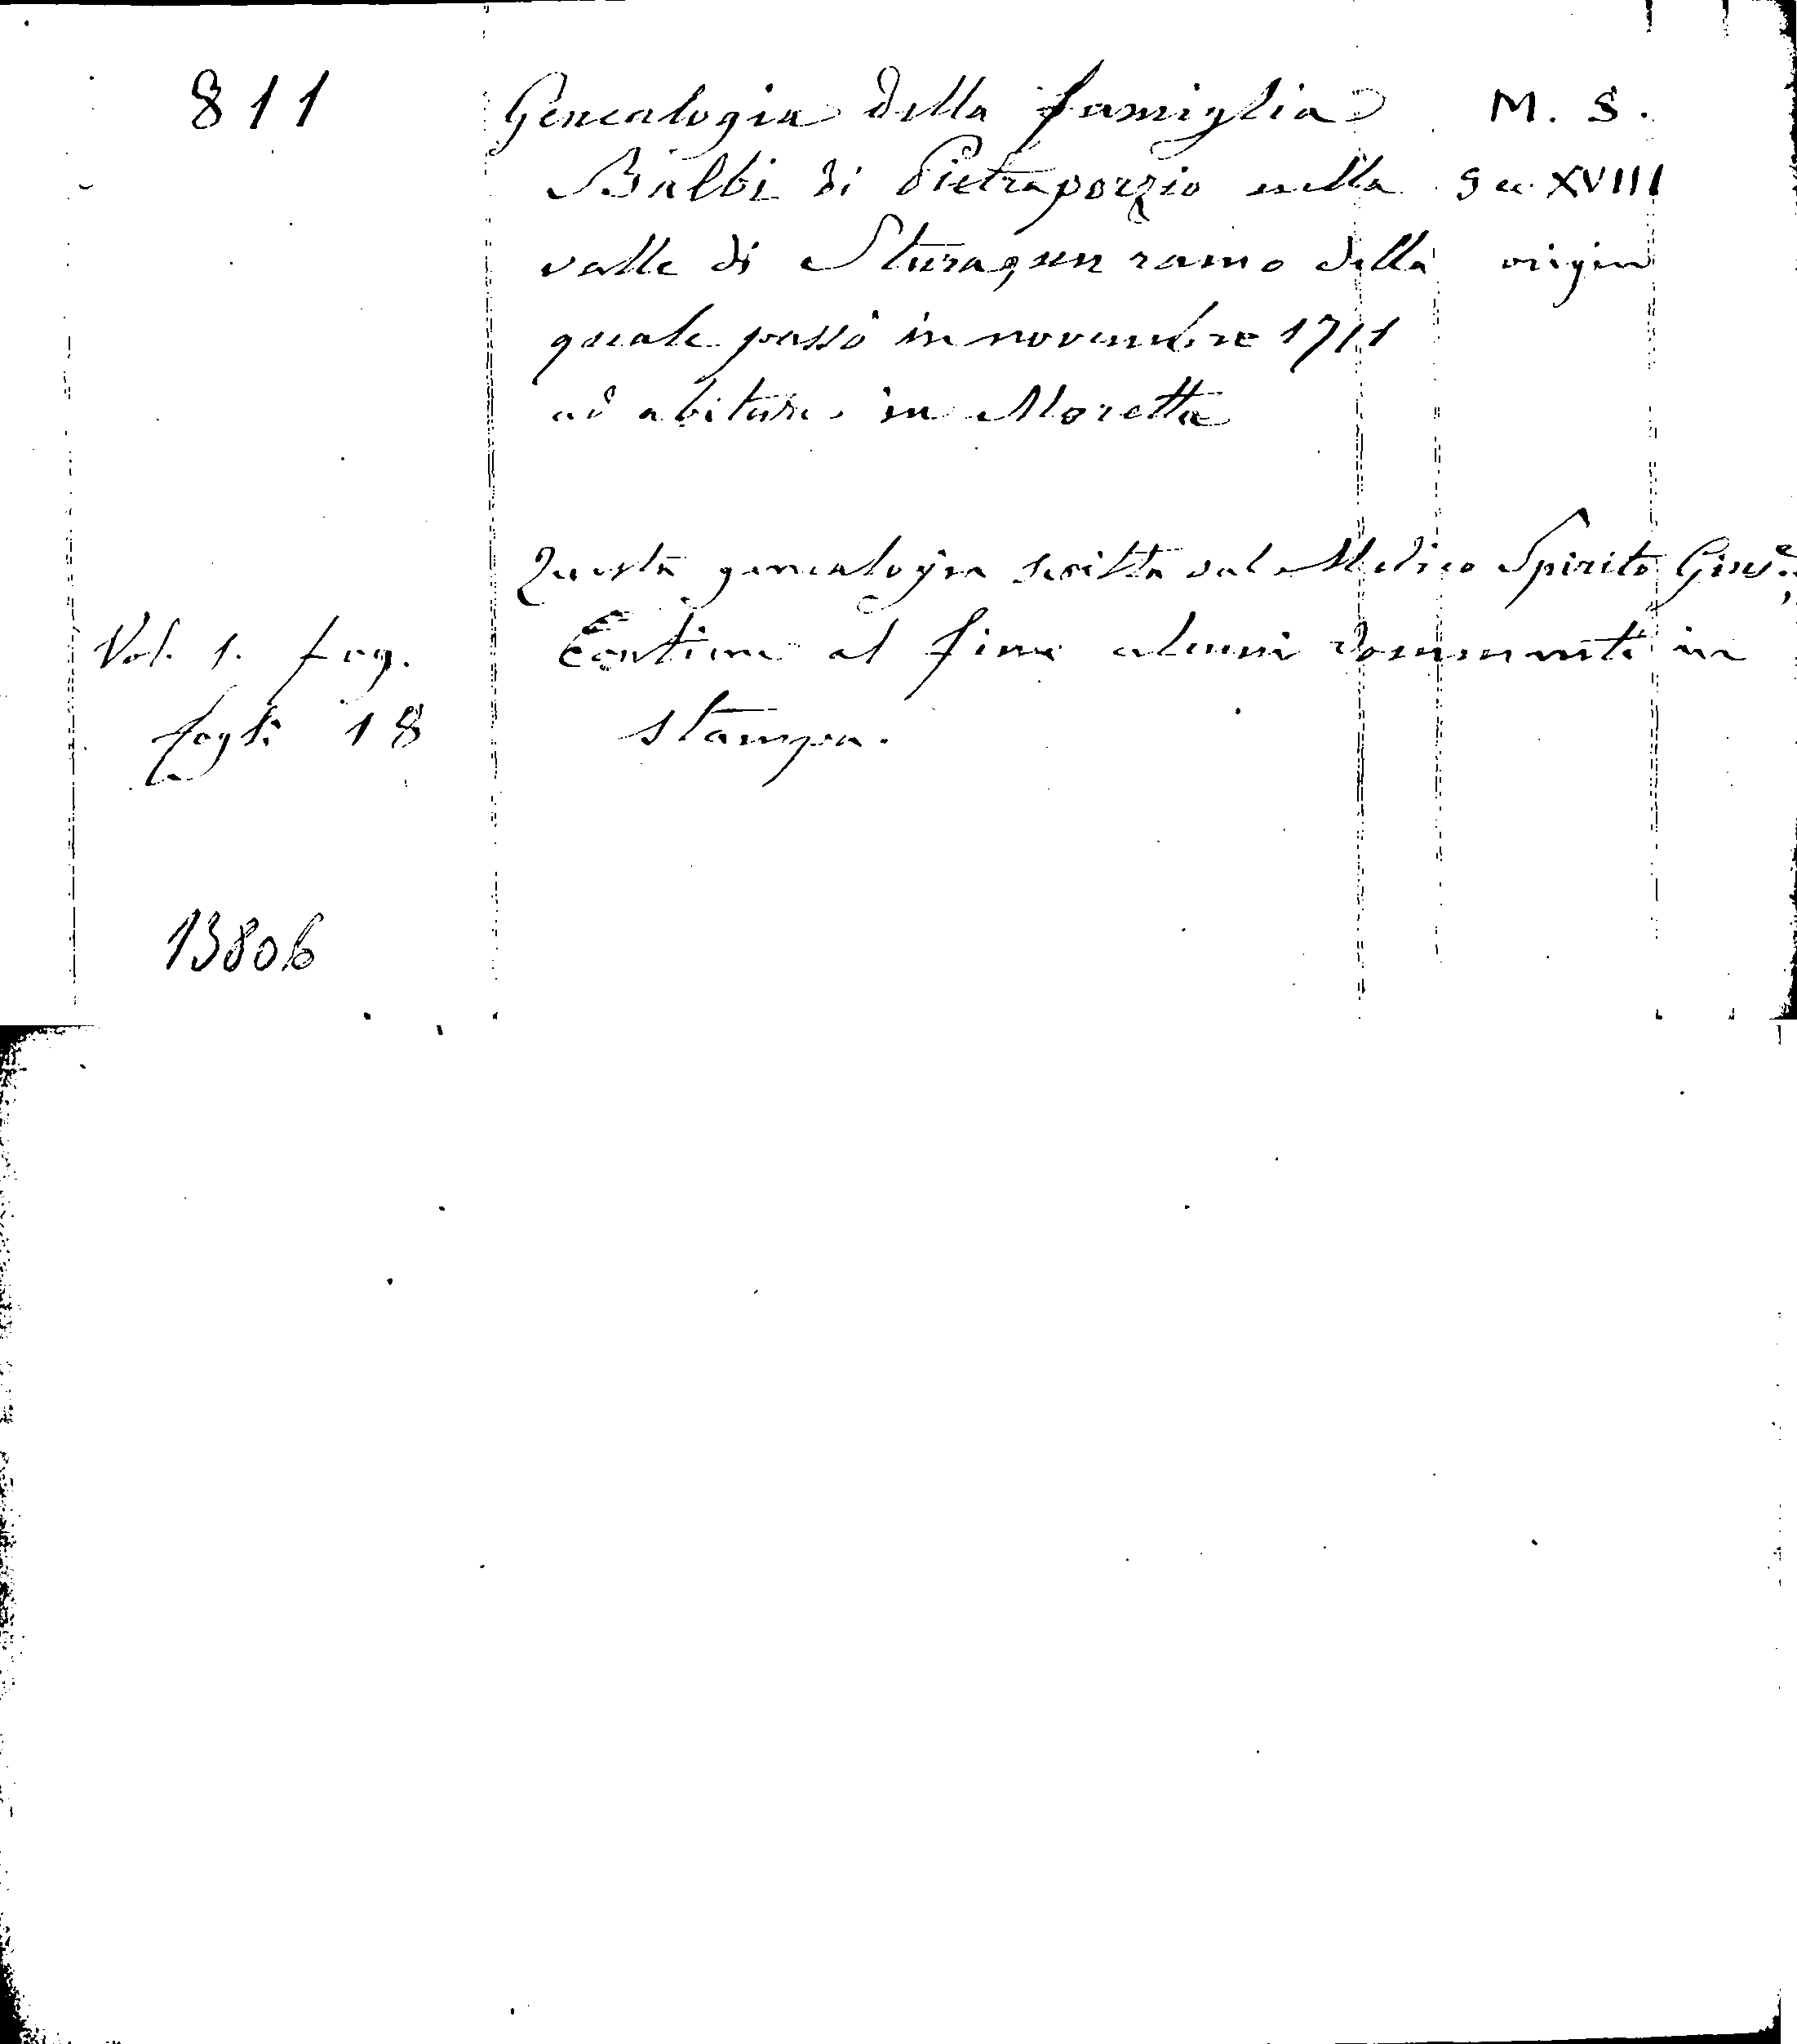 811 Genealogia della famiglia M. S.
Balbi di Pietraporzio nella Sec. XVIII
valle di Stura, un ramo della origin
quale passò in novembre 1711
ad abitare in Moretta
Questa genealogia scritta dal Medico Spirito Gius.e
Vol. 1. fog. Contiene al fine alcuni documenti in
fogli 18 stampa.
13806